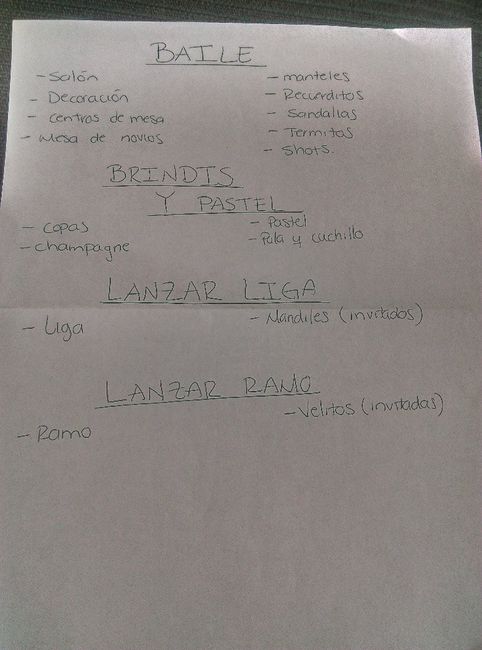 BAILE
- Salón
- Decoración
- Centros de mesa
- Mesa de novios
- manteles
- Recuerditos
- Sandalias
- Termitos
- Shots.
BRINDIS
Y PASTEL
- Copas
- champagne
- Pastel
- Pala y cuchillo
LANZAR LIGA
- Liga
- Mandiles (invitados)
LANZAR RAMO
- Ramo
- Velitos (invitadas)